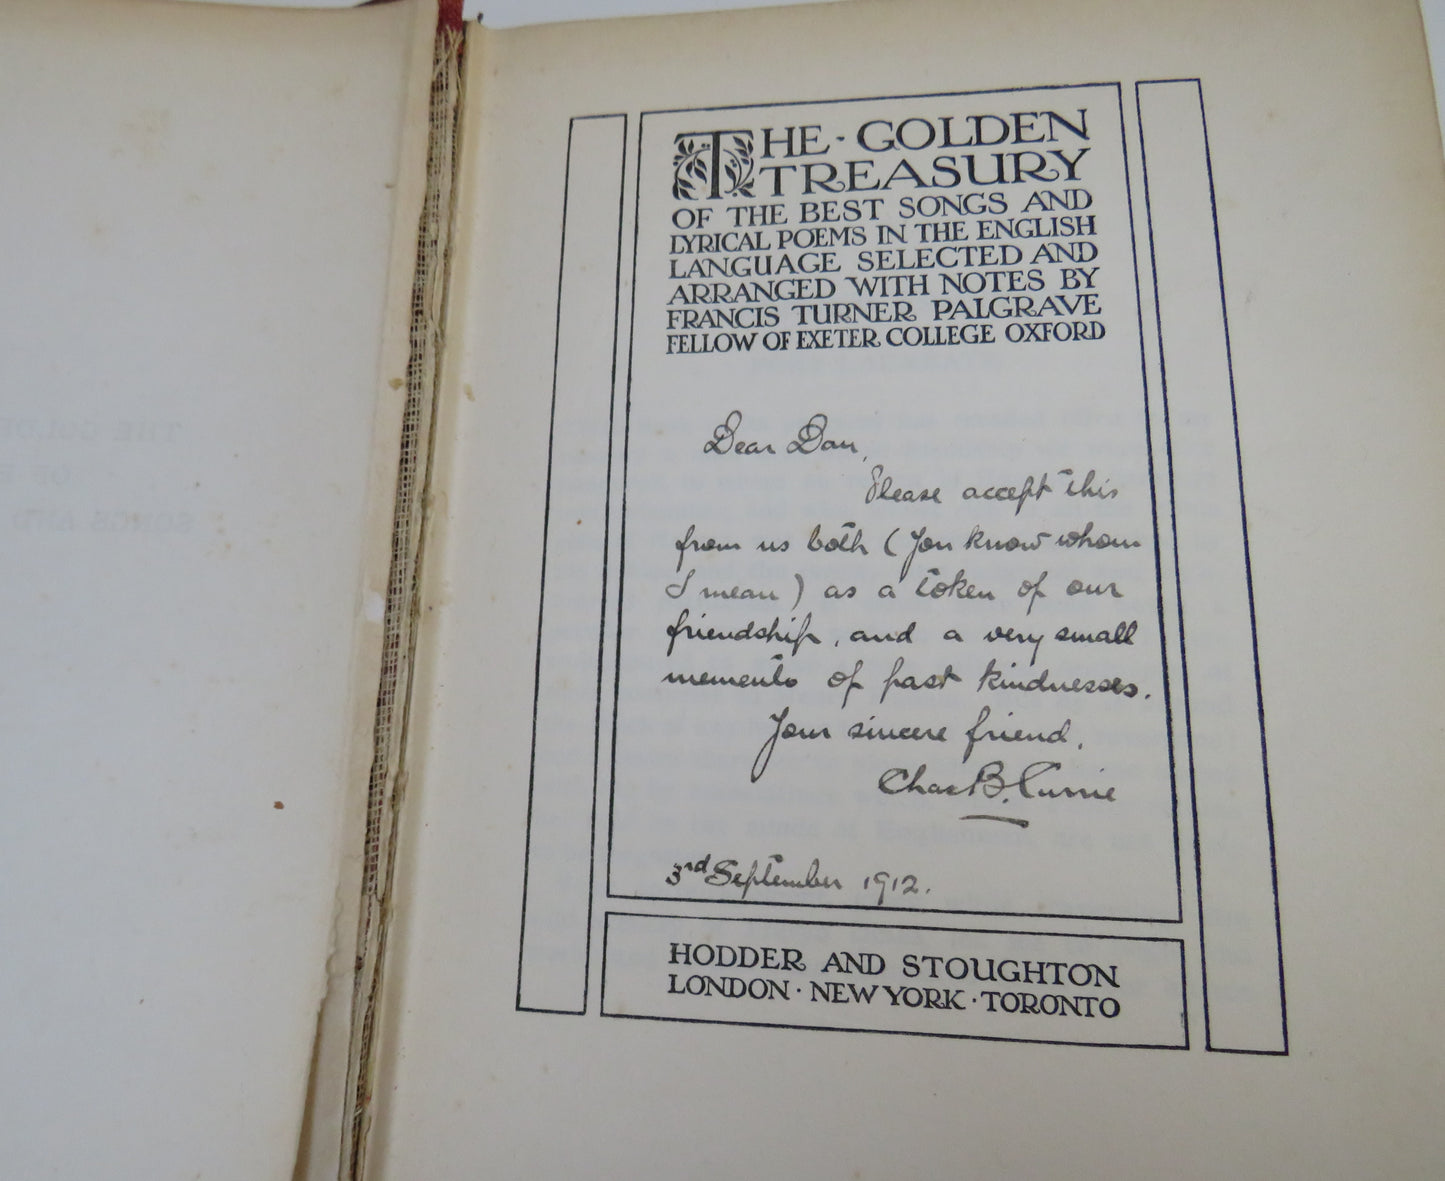 THE GOLDE
OF E
SONGS AND
THE · GOLDEN
TREASURY
OF THE BEST SONGS AND
LYRICAL POEMS IN THE ENGLISH
LANGUAGE SELECTED AND
ARRANGED WITH NOTES BY
FRANCIS TURNER PALGRAVE
FELLOW OF EXETER COLLEGE OXFORD
Dear Dan,
Please accept this
from us both (you know whom
I mean) as a token of our
friendship, and a very small
memento of past kindnesses.
Your sincere friend,
Chas B. Currie
3rd September 1912.
HODDER AND STOUGHTON
LONDON · NEW YORK · TORONTO